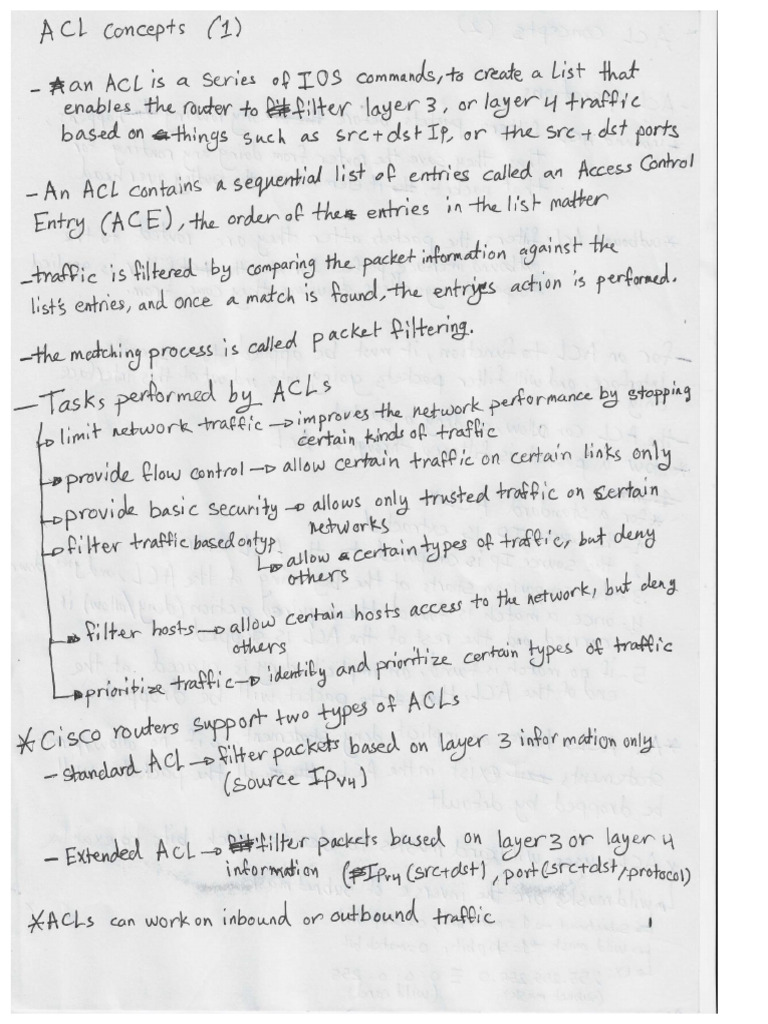 ACL Concepts (1)
- an ACL is a series of IOS commands, to create a List that
enables the router to filter layer 3, or layer 4 traffic
based on things such as src+dst IP, or the src + dst ports
- An ACL contains a sequential list of entries called an Access Control
Entry (ACE), the order of the entries in the list matter
- traffic is filtered by comparing the packet information against the
list's entries, and once a match is found, the entrys action is performed.
- the matching process is called packet filtering.
- Tasks performed by ACLs
↳ limit network traffic → improves the network performance by stopping
certain kinds of traffic
→ provide flow control → allow certain traffic on certain links only
→ provide basic security → allows only trusted traffic on certain
networks
→ filter traffic based on typ
↳ allow certain types of traffic, but deny
others
→ filter hosts → allow certain hosts access to the network, but deny
others
→ prioritize traffic → identify and prioritize certain types of traffic
* Cisco routers support two types of ACLs
- Standard ACL → filter packets based on layer 3 information only
(source IPv4)
- Extended ACL → filter packets based on layer 3 or layer 4
information (IPv4 (src+dst), port (src+dst, protocol)
* ACLs can work on inbound or outbound traffic
1